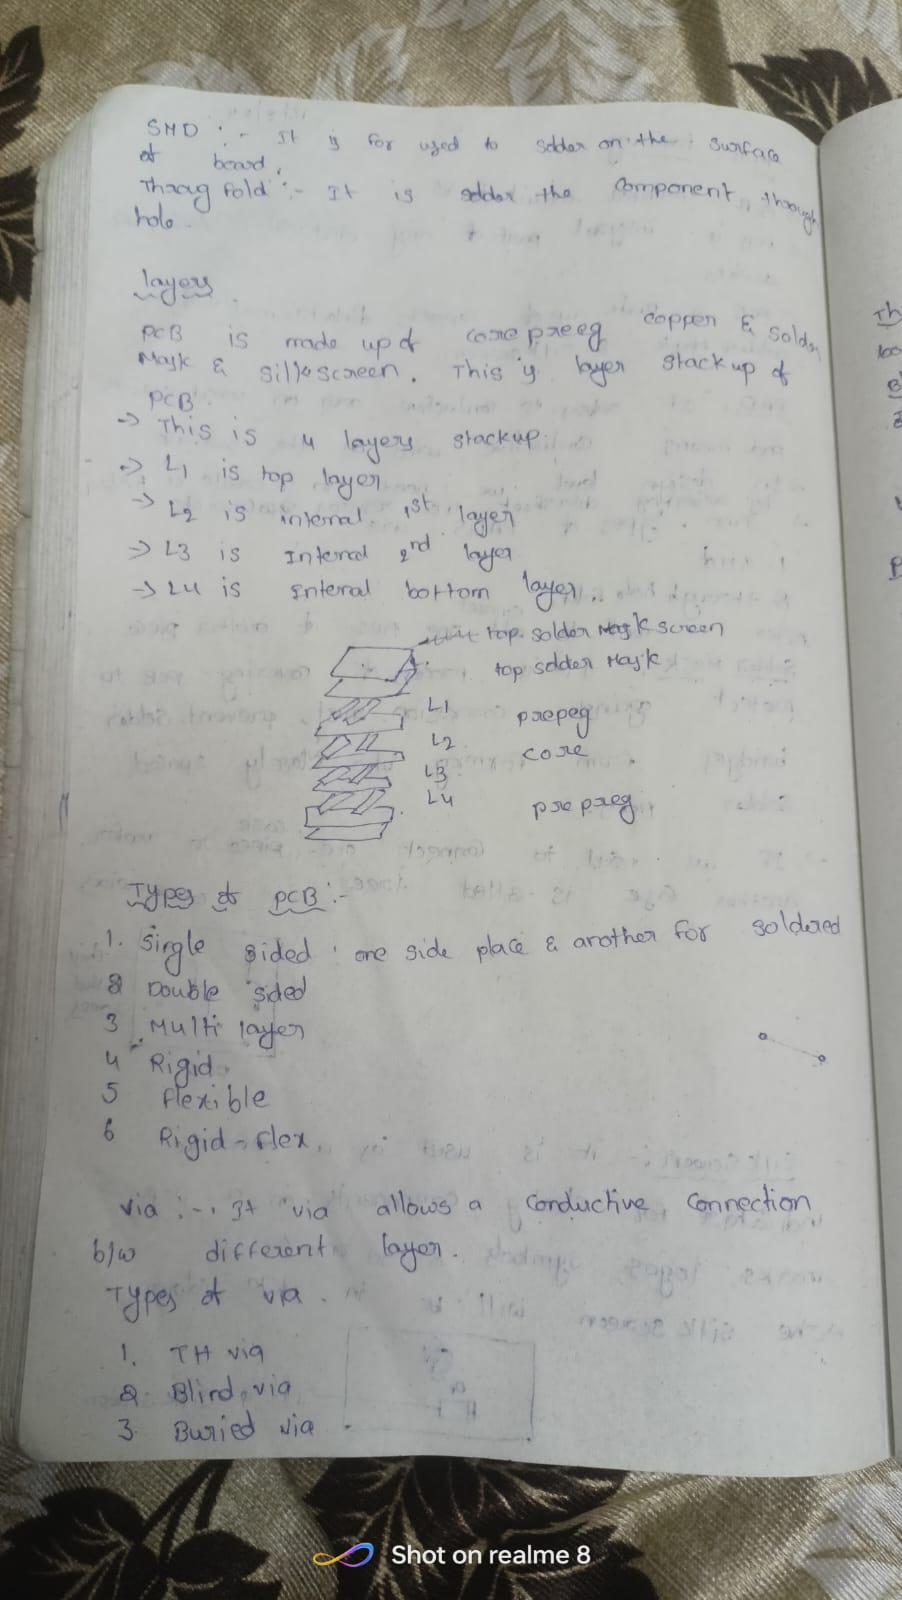 SMD :- It is for used to solder on the surface
of board.
Throug hold :- It is solder the component through
hole.
layers
PCB is made up of core preeg copper & solder
Mask & sillkscreen. This is layer stack up of
PCB.
-> This is 4 layers stackup.
-> L1 is top layer
-> L2 is internal 1st layer
-> L3 is Internal 2nd layer
-> L4 is Internal bottom layer.
top solder Mask screen
top solder Mask
L1
prepeg
L2
core
L3
L4
prepreg
Types of PCB :-
1. Single sided : one side place & another for soldered
2 Double sided
3 Multi layer
4 Rigid
5 flexible
6 Rigid-flex.
via :- It via allows a conductive connection
b/w different layer.
Types of via.
1. TH via
2. Blind via
3. Buried via
Shot on realme 8